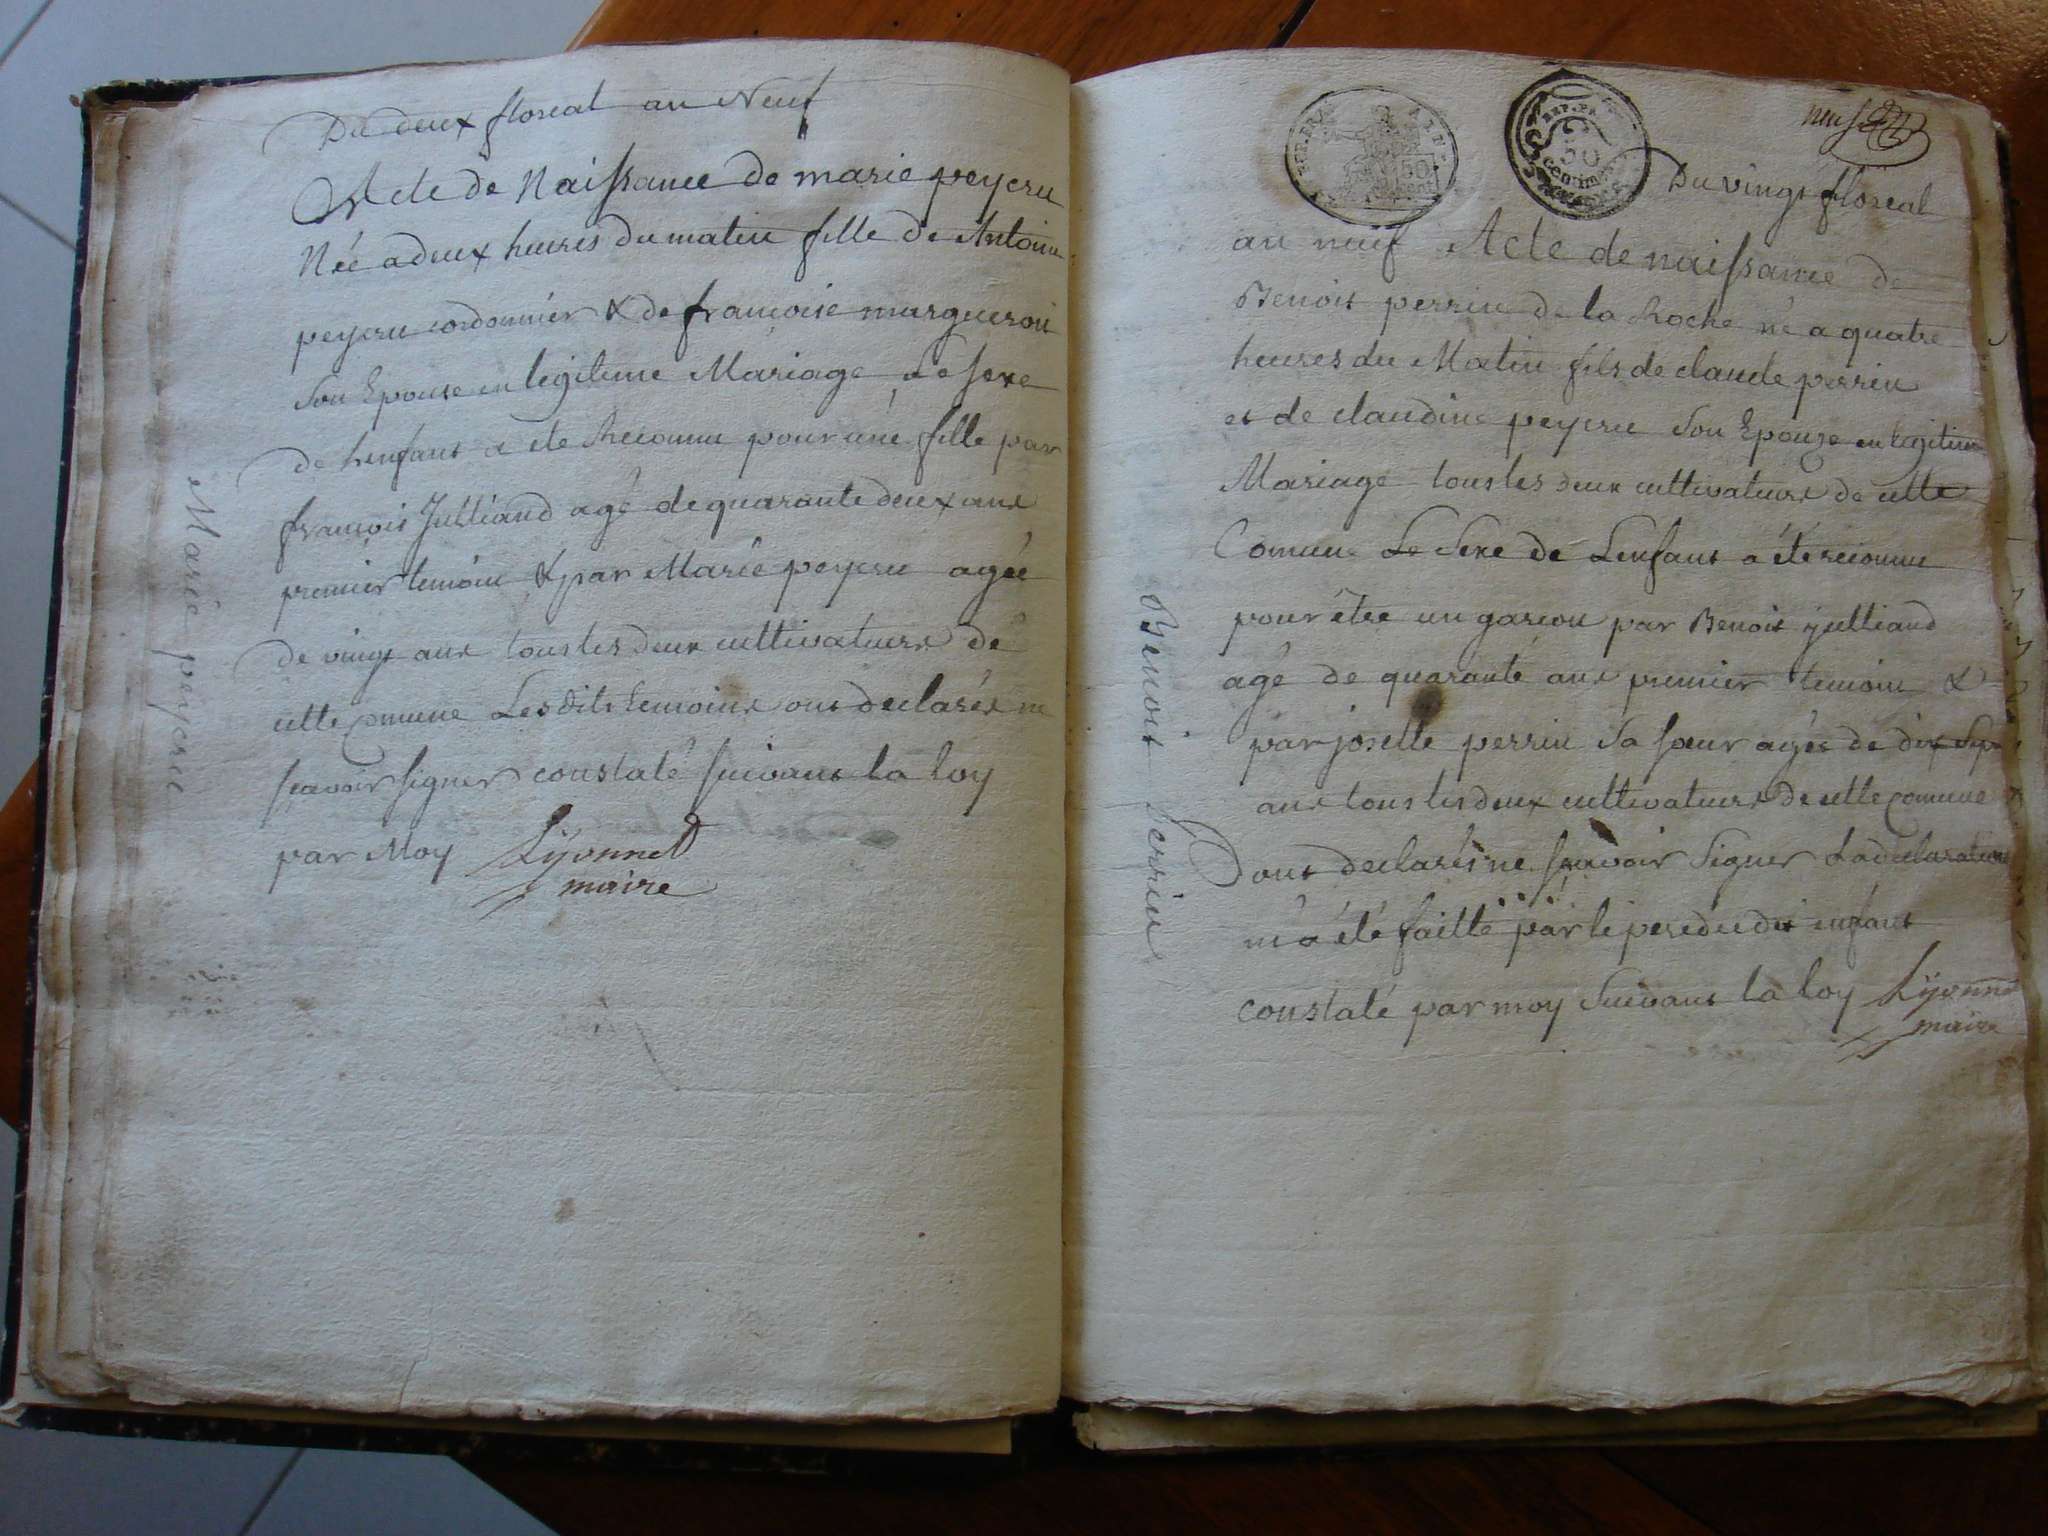 Du deux floreal an Neuf
Acte de Naissance de marie peycru
Née a deux heures du matin fille de Antoine
peycru cordonnier & de francoise margueron
Son Epouse en legitime Mariage Le sexe
de henfant a ete Reconnu pour une fille par
francois Julliand agé de quarante deux ans
premier temoin & par Marie peycru agée
de vingt ans tous les deux cultivateurs de
cette comune Lesdits temoins ont declarés ne
scavoir signer constaté suivant la loy
par Moy Lyonnet
maire
Marie peycru
REP. FRA
50
cent
REP. FRA
50
centimes
neuf
Du vingt floreal
an neuf Acte de naissance de
Benoit perrin de la Roche né a quatre
heures du Matin fils de claude perrin
et de claudine peycru Son Epouze en legitime
Mariage tous les deux cultivateurs de cette
Comune Le Sexe de Lenfant a été reconnu
pour être un garcon par Benoit julliand
agé de quarante ans premier temoin &
par josette perrin Sa sœur agée de dix Sept
ans tous les deux cultivateurs de cette comune
ont declarés ne scavoir Signer La declaration
m'a été faitte par le pere du dit enfant
constaté par moy Suivant la loy Lyonnet
maire
Benoit Perrin